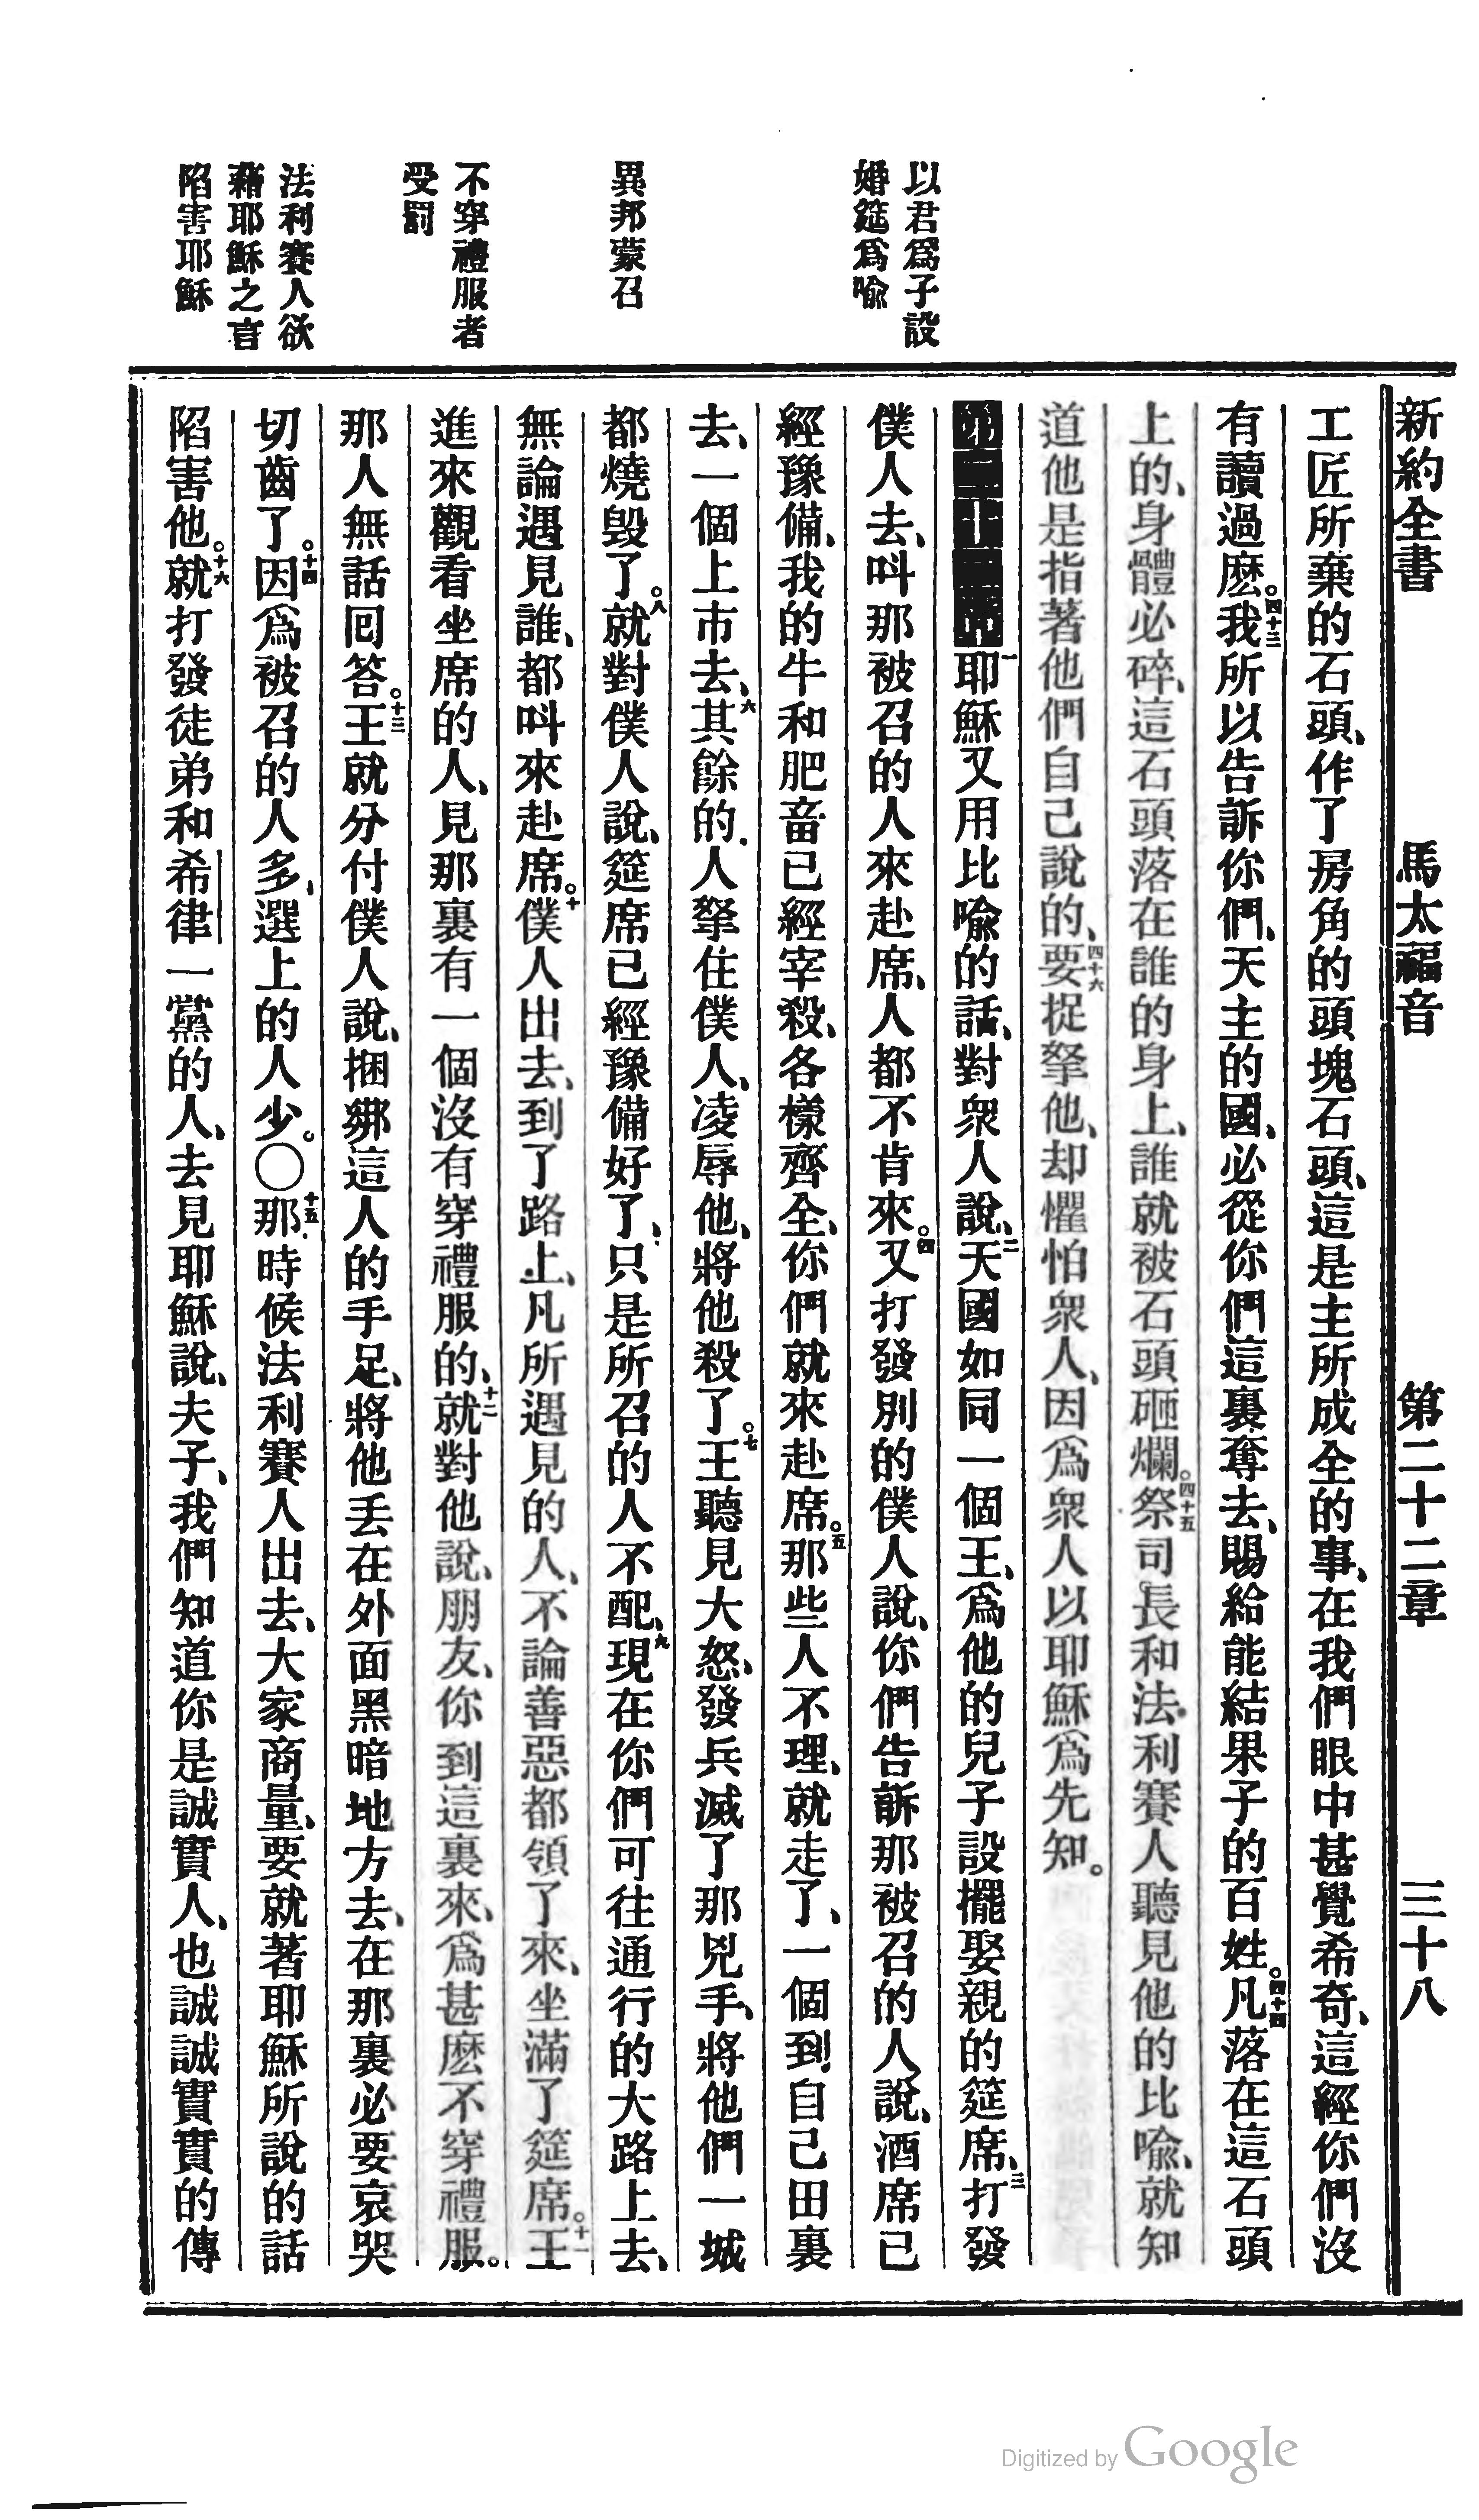 新約全書 馬太福音 第二十二章 三十八
工匠所棄的石頭、作了房角的頭塊石頭、這是主所成全的事、在我們眼中甚覺希奇、這經你們沒
有讀過麽。四十三我所以告訴你們、天主的國、必從你們這裏奪去、賜給能結果子的百姓。四十四凡落在這石頭
上的、身體必碎、這石頭落在誰的身上、誰就被石頭砸爛。四十五祭司長和法利賽人聽見他的比喻、就知
道他是指著他們自己說的、四十六要捉拏他、却懼怕衆人、因爲衆人以耶穌爲先知。
以君爲子設
婚筵爲喻
第二十二章一耶穌又用比喻的話、對衆人說、二天國如同一個王、爲他的兒子設擺娶親的筵席、三打發
僕人去、呌那被召的人來赴席、人都不肯來。四又打發別的僕人說、你們告訴那被召的人、說、酒席已
經豫備、我的牛和肥畜已經宰殺、各樣齊全、你們就來赴席。五那些人不理、就走了、一個到自己田裏
去、一個上市去、六其餘的人拏住僕人、凌辱他、將他殺了。七王聽見大怒、發兵滅了那兇手、將他們一城
異邦蒙召
都燒毀了。八就對僕人說、筵席已經豫備好了、只是所召的人不配、九現在你們可往通行的大路上去、
無論遇見誰、都呌來赴席。十僕人出去、到了路上、凡所遇見的人、不論善惡都領了來、坐滿了筵席。十一王
不穿禮服者
受罰
進來觀看坐席的人、見那裏有一個沒有穿禮服的、十二就對他說、朋友、你到這裏來、爲甚麽不穿禮服。
那人無話囘答。十三王就分付僕人說、捆綁這人的手足、將他丟在外面黑暗地方去、在那裏必要哀哭
法利賽人欲
藉耶穌之言
陷害耶穌
切齒了。十四因爲被召的人多、選上的人少。〇十五那時候法利賽人出去、大家商量、要就著耶穌所說的話
陷害他。十六就打發徒弟和希律一黨的人、去見耶穌說、夫子、我們知道你是誠實人、也誠誠實實的傳
Digitized by Google